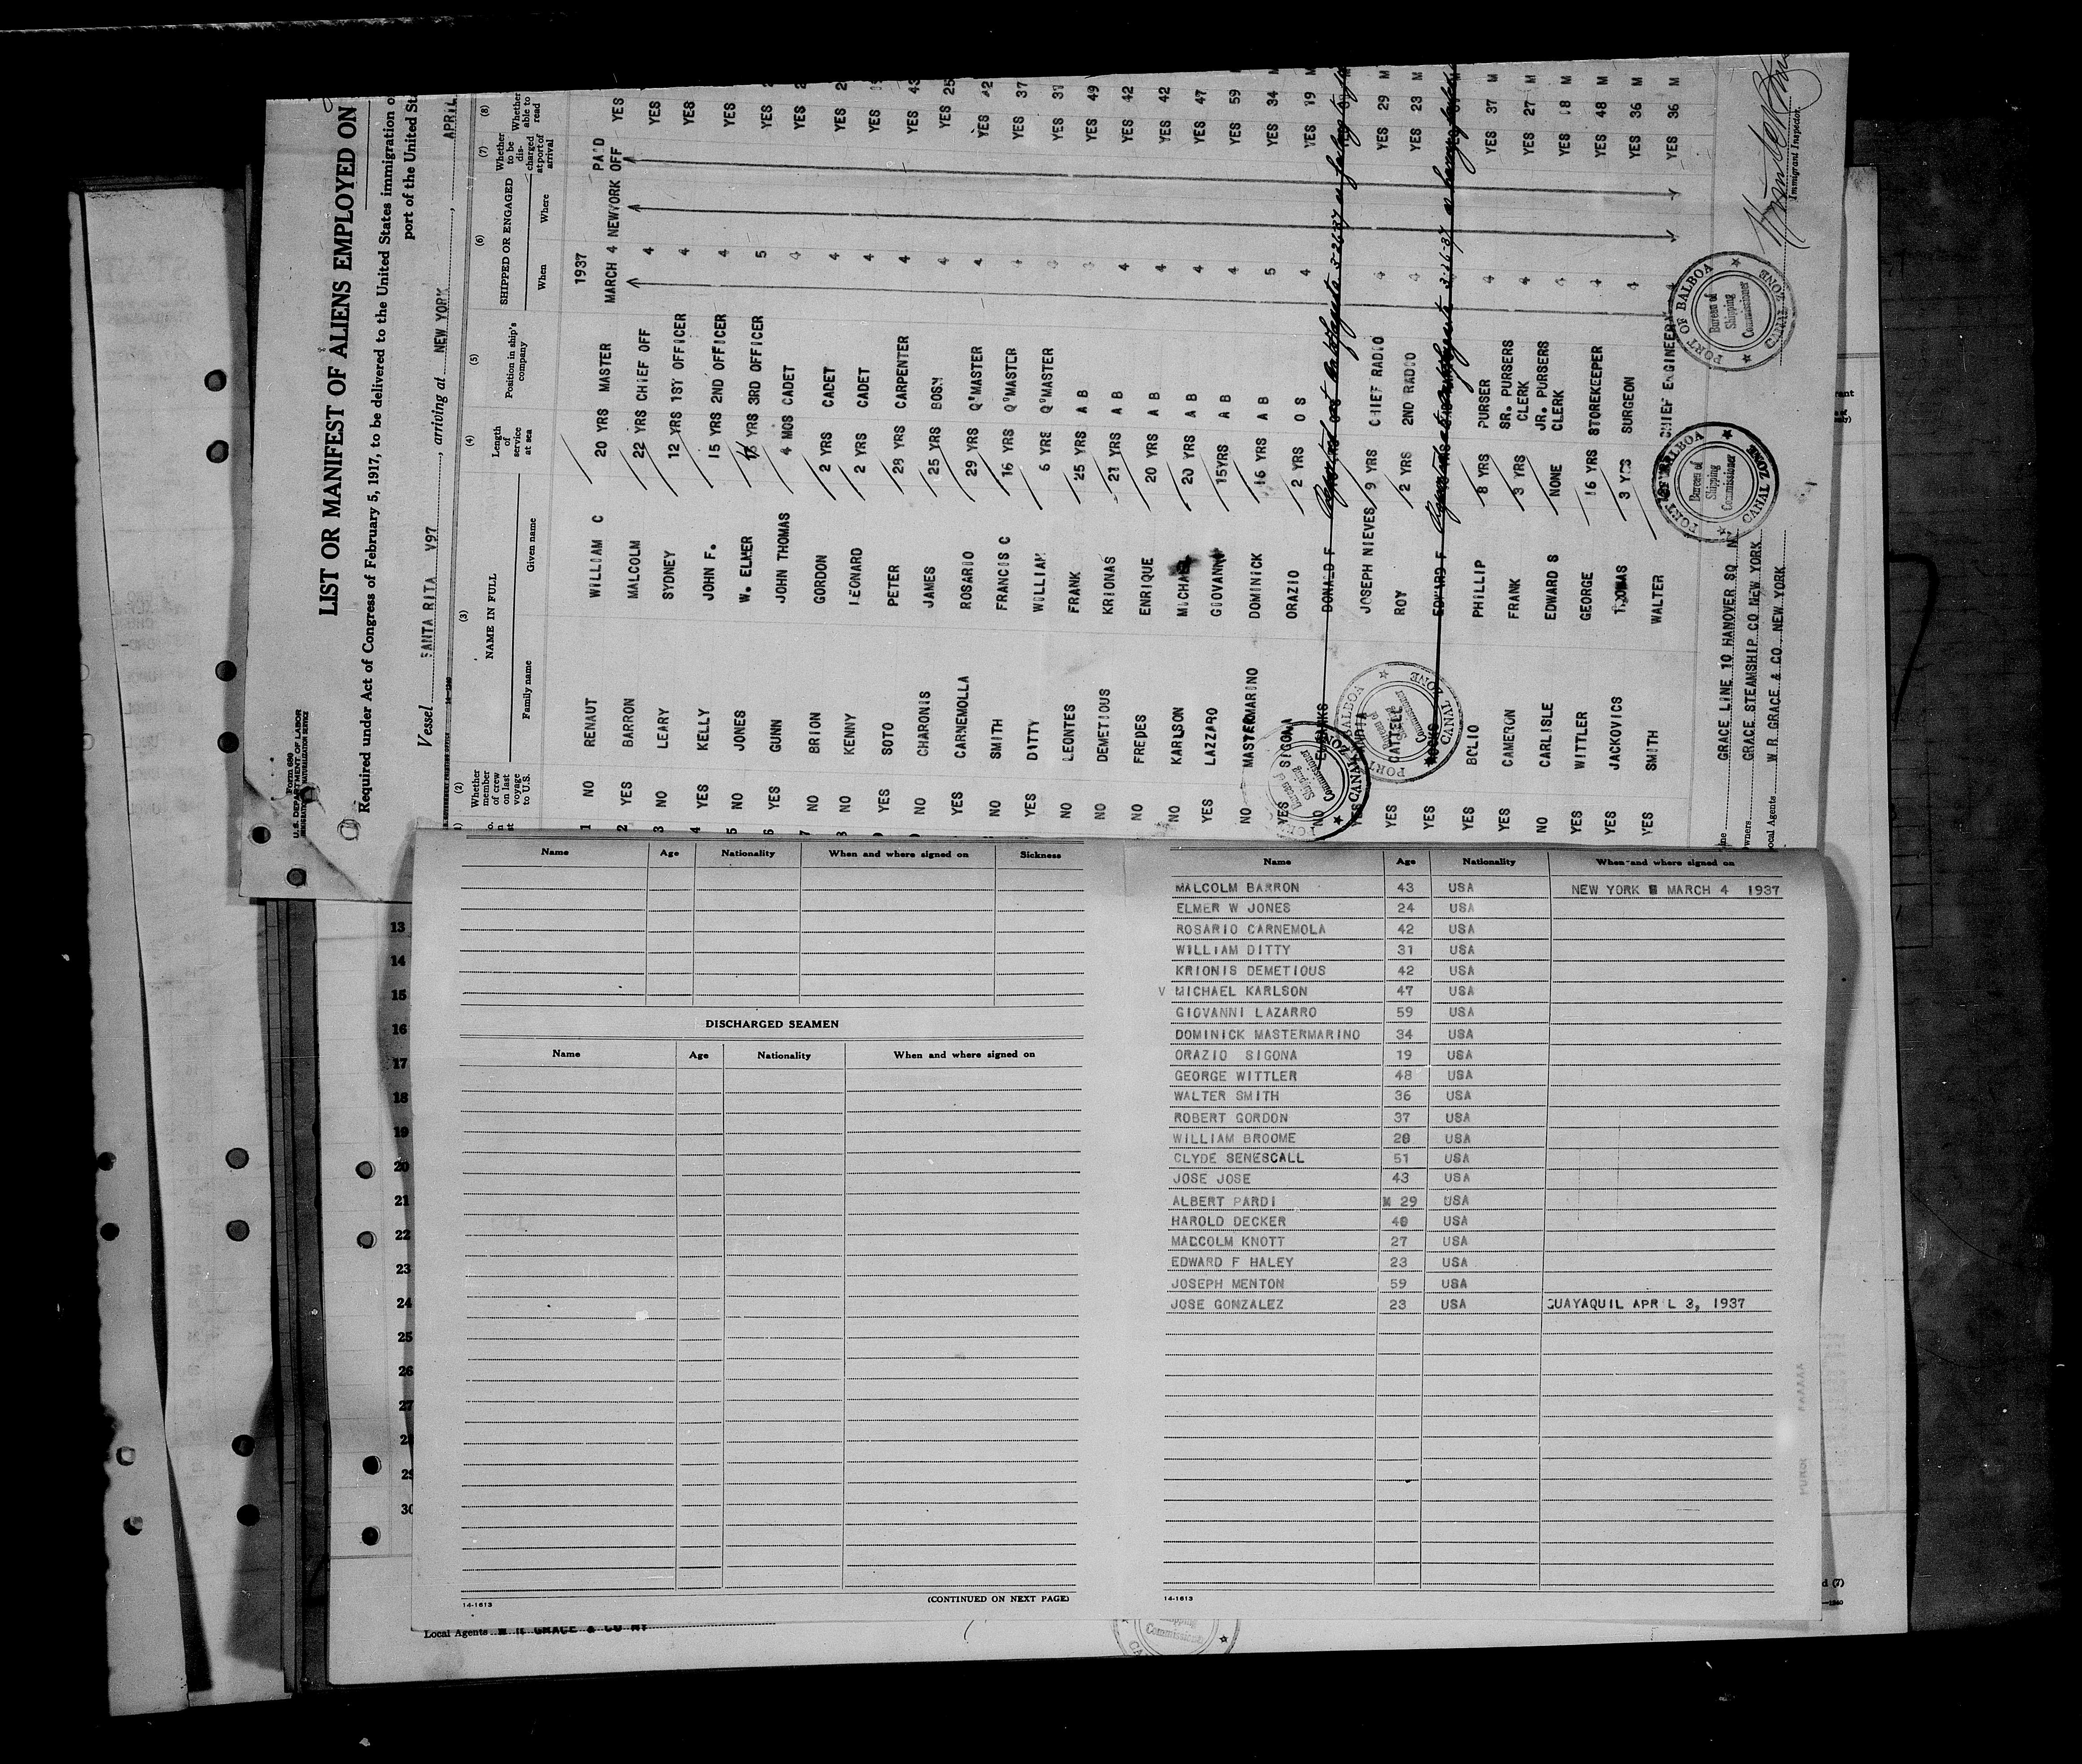 Form 680
U. S. DEPARTMENT OF LABOR
IMMIGRATION AND NATURALIZATION SERVICE
LIST OR MANIFEST OF ALIENS EMPLOYED ON
Required under Act of Congress of February 5, 1917, to be delivered to the United States immigration o
port of the United St
Vessel SANTA RITA V97, arriving at NEW YORK, APRIL
(2) (3) (4) (5) (6) (7) (8)
Whether member of crew on last voyage to U.S.
NAME IN FULL
Family name Given name
Length of service at sea
Position in ship's company
SHIPPED OR ENGAGED
When Where
Whether to be discharged at port of arrival
Whether able to read
1937 PAID
1 NO RENAUT WILLIAM C 20 YRS MASTER MARCH 4 NEWYORK OFF YES
2 YES BARRON MALCOLM 22 YRS CHIEF OFF 4 YES
3 NO LEARY SYDNEY 12 YRS 1SY OFFICER 4 YES
4 YES KELLY JOHN F. 15 YRS 2ND OFFICER 4 YES
5 NO JONES W. ELMER YRS 3RD OFFICER 5 YES
6 YES GUNN JOHN THOMAS 4 MOS CADET 4 YES
7 NO BRION GORDON 2 YRS CADET 4 YES
8 NO KENNY LEONARD 2 YRS CADET 4 YES
9 YES SOTO PETER 28 YRS CARPENTER 4 YES 43
NO CHARONIS JAMES 25 YRS BOSN 4 YES 25
YES CARNEMOLLA ROSARIO 29 YRS Q'MASTER 4 YES 42
NO SMITH FRANCIS C 16 YRS Q'MASTER 4 YES 37
YES DITTY WILLIAM 6 YRS Q'MASTER 4 YES 31
NO LEONTES FRANK 25 YRS A B 4 YES 49
NO DEMETIOUS KRIONAS 21 YRS A B 4 YES 42
NO FREDES ENRIQUE 20 YRS A B 4 YES 42
NO KARLSON MICHAEL 20 YRS A B 4 YES 47
YES LAZZARO GIOVANNI 15YRS A B 4 YES 59
NO MASTERMARINO DOMINICK 16 YRS A B 5 YES 34 M
YES SIGONA ORAZIO 2 YRS O S 4 YES 19 M
NO EUBANKS DONALD F
YES JOSEPH NIEVES 9 YRS CHIEF RADIO 4 YES 29 M
YES CATTELL ROY 2 YRS 2ND RADIO 4 YES 23 M
YES EDWARD F
YES BOLIO PHILLIP 8 YRS PURSER 4 YES 37 M
YES CAMERON FRANK 3 YRS SR. PURSERS CLERK 4 YES 27 M
NO CARLISLE EDWARD S NONE JR. PURSERS CLERK 4 YES 18 M
YES WITTLER GEORGE 16 YRS STOREKEEPER 4 YES 48 M
YES JACKOVICS THOMAS 3 YRS SURGEON 4 YES 36 M
YES SMITH WALTER CHIEF ENGINEER 4 YES 36 M
GRACE LINE 10 HANOVER SQ N
wners GRACE STEAMSHIP CO NEW YORK
ocal Agents W R GRACE & CO. NEW YORK
Immigrant Inspector.
PORT OF BALBOA
Bureau of Shipping Commissioner
CANAL ZONE
PORT OF BALBOA
Bureau of Shipping Commissioner
CANAL ZONE
Name Age Nationality When and where signed on Sickness
DISCHARGED SEAMEN
Name Age Nationality When and where signed on
14-1613
(CONTINUED ON NEXT PAGE)
Name Age Nationality When and where signed on
MALCOLM BARRON 43 USA NEW YORK MARCH 4 1937
ELMER W JONES 24 USA
ROSARIO CARNEMOLA 42 USA
WILLIAM DITTY 31 USA
KRIONIS DEMETIOUS 42 USA
V MICHAEL KARLSON 47 USA
GIOVANNI LAZARRO 59 USA
DOMINICK MASTERMARINO 34 USA
ORAZIO SIGONA 19 USA
GEORGE WITTLER 48 USA
WALTER SMITH 36 USA
ROBERT GORDON 37 USA
WILLIAM BROOME 28 USA
CLYDE SENESCALL 51 USA
JOSE JOSE 43 USA
ALBERT PARDI M 29 USA
HAROLD DECKER 40 USA
MALCOLM KNOTT 27 USA
EDWARD F HALEY 23 USA
JOSEPH MENTON 59 USA
JOSE GONZALEZ 23 USA GUAYAQUIL APRIL 3, 1937
14-1613
13
14
15
16
17
18
19
20
21
22
23
24
25
26
27
28
29
30
Local Agents W R GRACE & CO NY